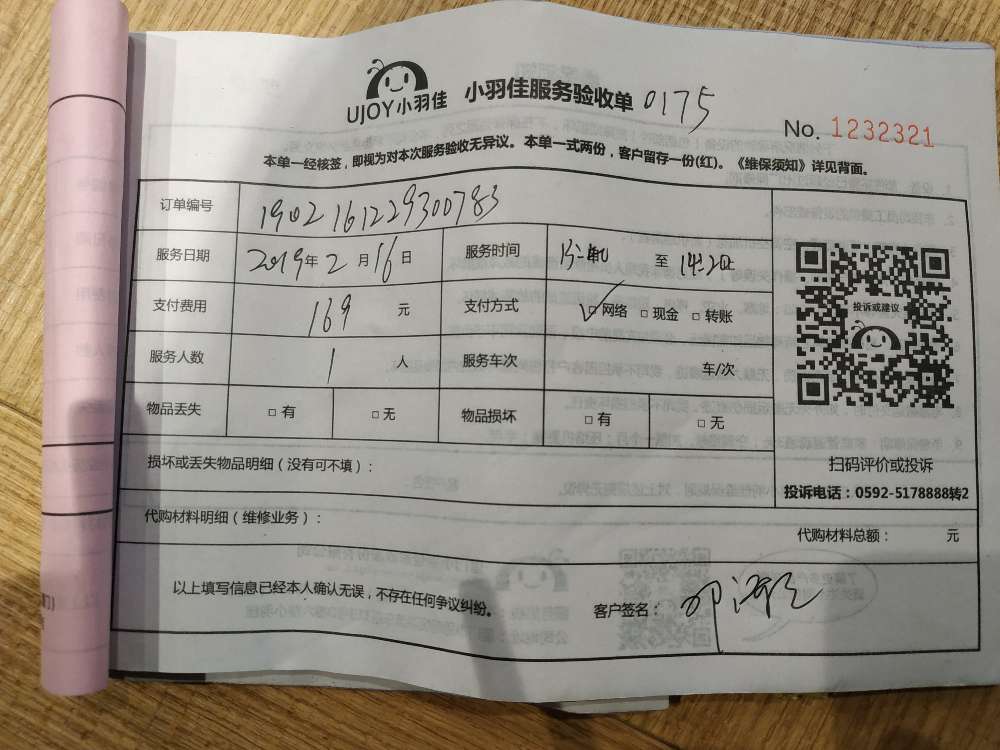 UJOY小羽佳 小羽佳服务验收单 0175
No. 1232321
本单一经核签，即视为对本次服务验收无异议。本单一式两份，客户留存一份(红)。《维保须知》详见背面。
订单编号 1902161229300783
服务日期 2019年 2 月 16 日 服务时间 至
支付费用 169 元 支付方式 ☑网络 □现金 □转账
服务人数 1 人 服务车次 车/次
物品丢失 □有 □无 物品损坏 □有 □无
投诉或建议
扫码评价或投诉
投诉电话：0592-5178888转2
损坏或丢失物品明细（没有可不填）：
代购材料明细（维修业务）：
代购材料总额： 元
以上填写信息已经本人确认无误，不存在任何争议纠纷。
客户签名：